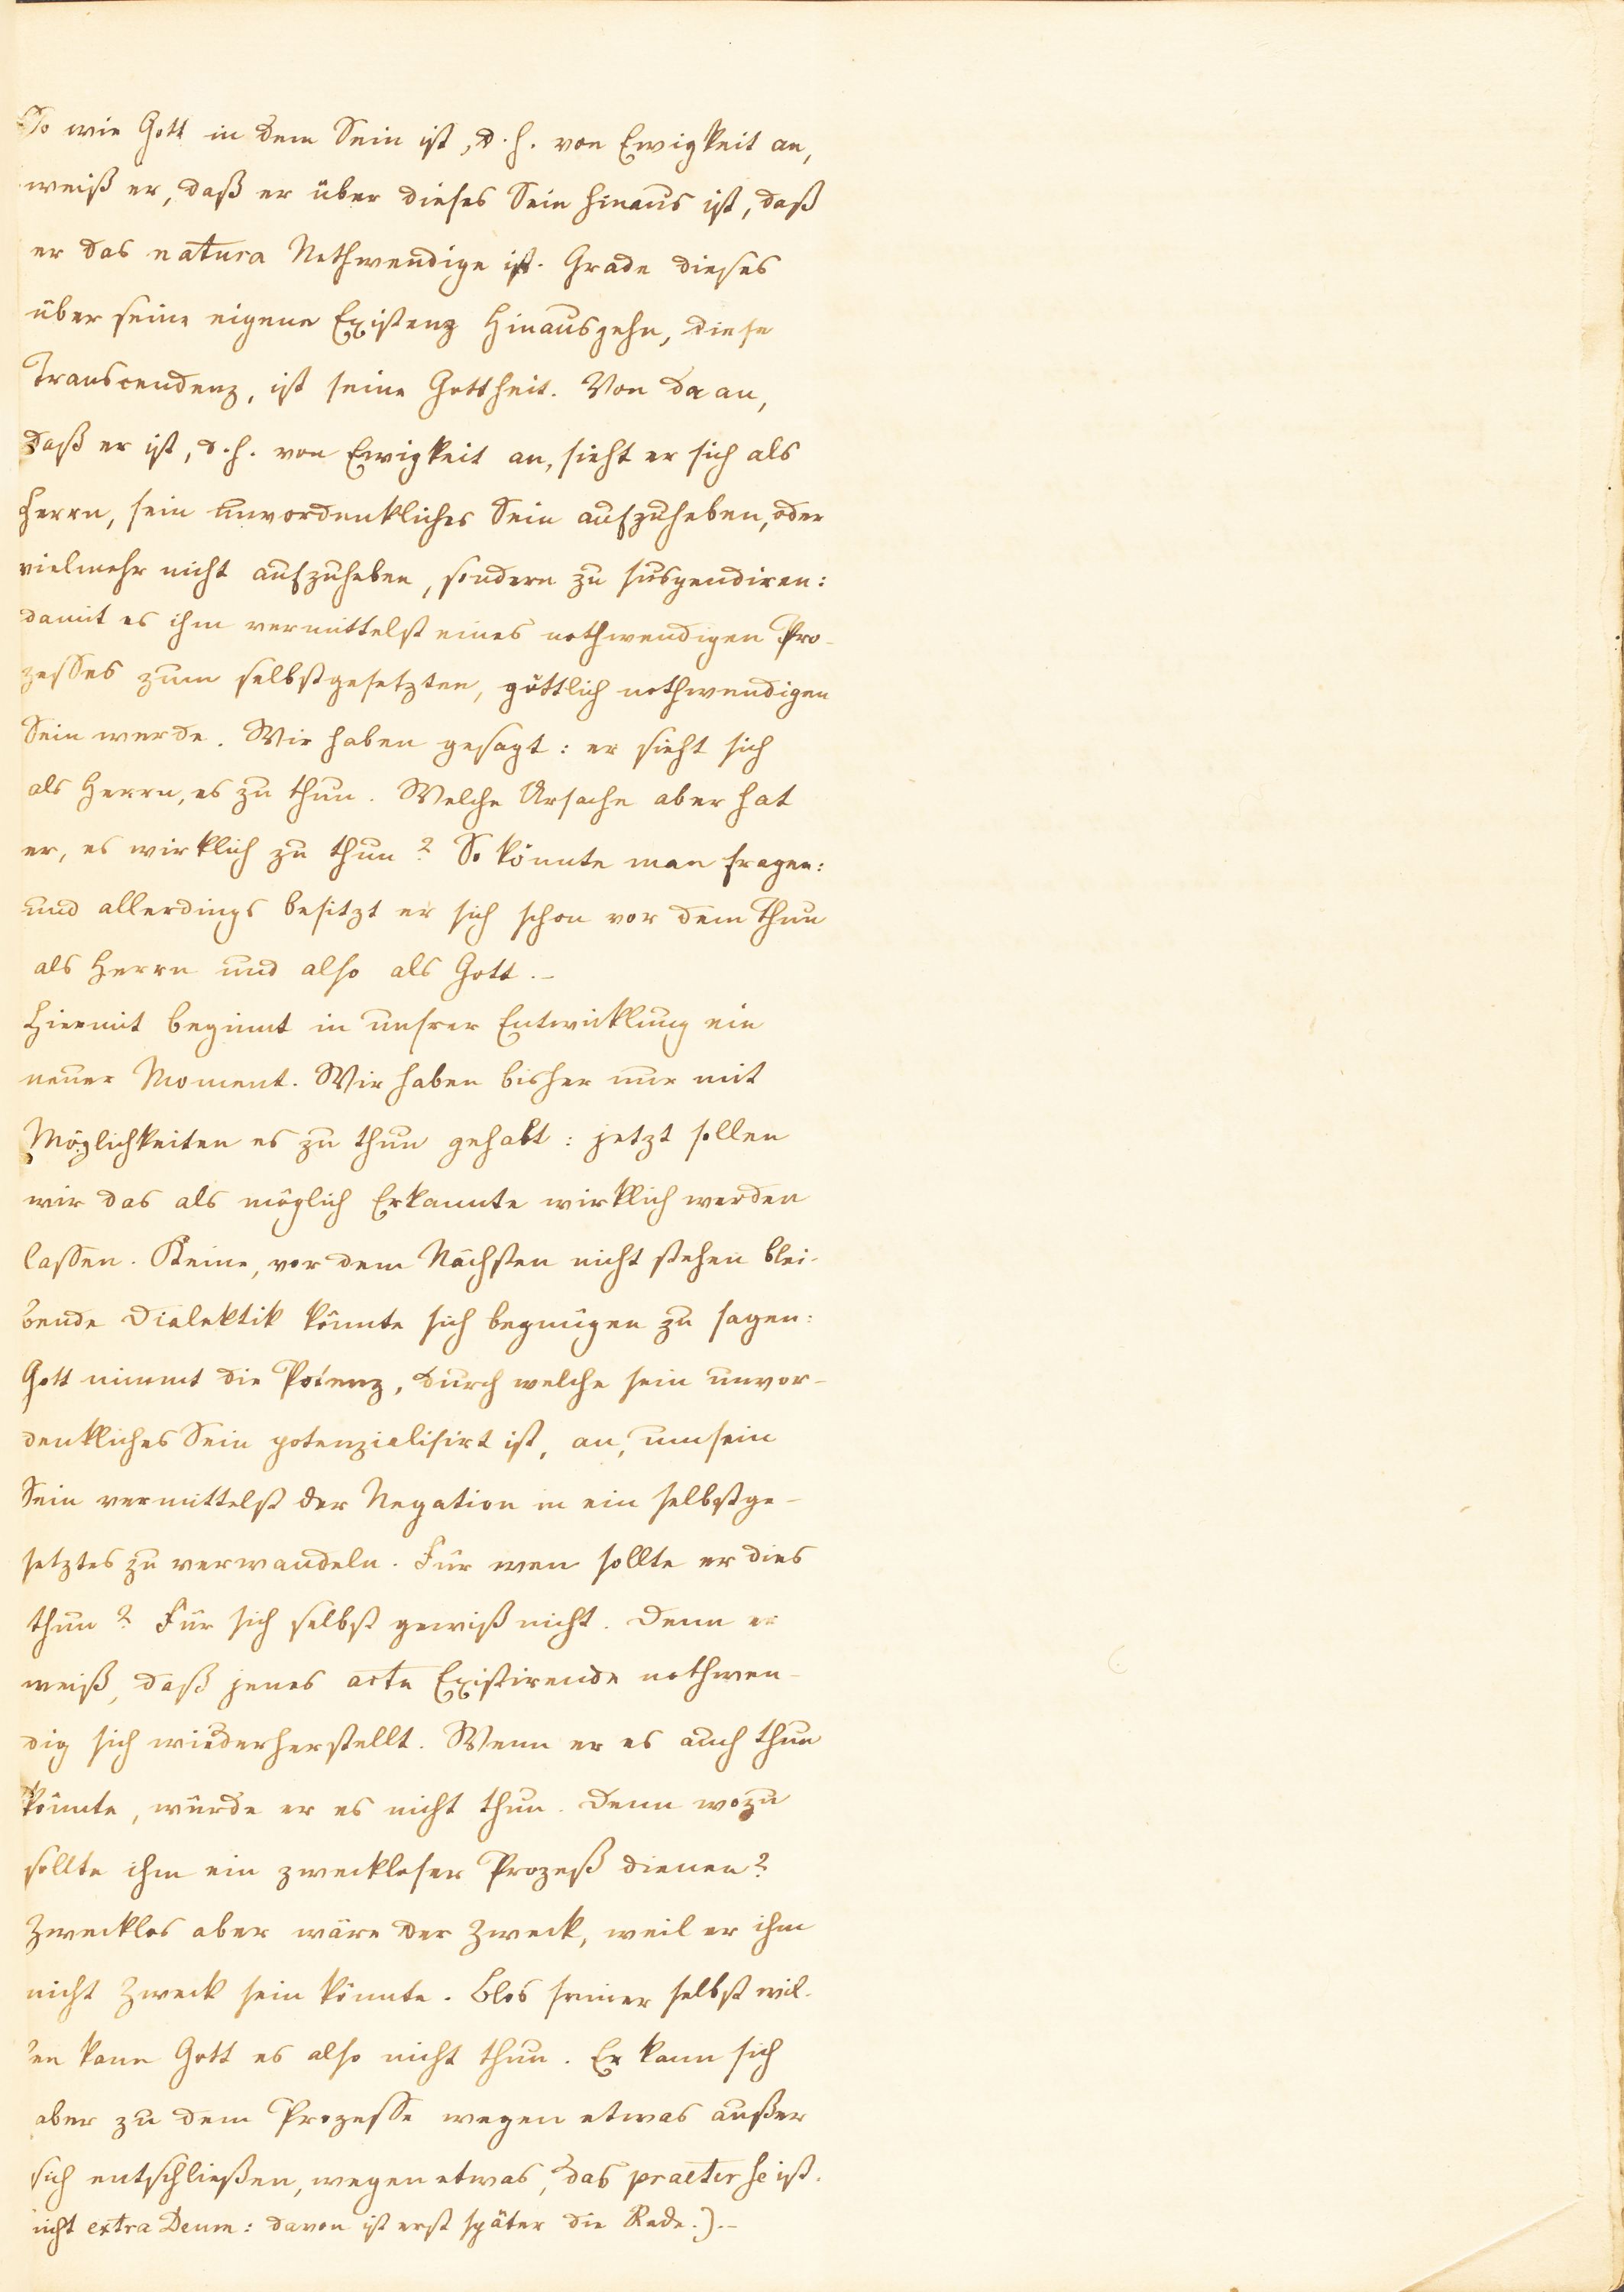 So wie Gott in dem Sein ist, d. h. von Ewigkeit an,
weiß er, daß er über dieses Sein hinaus ist, daß
er das natura Nothwendige ist. Grade dieses
über seine eigene Existenz Hinausgehn, diese
Transcendenz, ist seine Gottheit. Von da an,
daß er ist, d. h. von Ewigkeit an, sieht er sich als
Herrn, sein unvordenkliches Sein aufzuheben, oder
vielmehr nicht aufzuheben, sondern zu suspendiren:
damit es ihm vermittelst eines nothwendigen Pro-
zesses zum selbstgesetzten, göttlich nothwendigen
Sein werde. Wir haben gesagt: er sieht sich
als Herrn, es zu thun. Welche Ursache aber hat
er, es wirklich zu thun? So könnte man fragen:
und allerdings besitzt er sich schon vor dem Thun
als Herrn und also als Gott. –
Hiermit beginnt in unsrer Entwicklung ein
neuer Moment. Wir haben bisher nur mit
Möglichkeiten es zu thun gehabt: jetzt sollen
wir das als möglich Erkannte wirklich werden
lassen. Keine, vor dem Nächsten nicht stehen blei-
bende Dialektik könnte sich begnügen zu sagen:
Gott nimmt die Potenz, durch welche sein unvor-
denkliches Sein potenzialisirt ist, an, um sein
Sein vermittelst der Negation in ein selbstge-
setztes zu verwandeln. Für wen sollte er dies
thun? Für sich selbst gewiß nicht. Denn er
weiß, daß jenes actu Existirende nothwen-
dig sich wiederherstellt. Wenn er es auch thun
könnte, würde er es nicht thun. Denn wozu
sollte ihm ein zweckloser Prozeß dienen?
Zwecklos aber wäre der Zweck, weil er ihm
nicht Zweck sein könnte. Blos seiner selbst wil-
len kann Gott es also nicht thun. Er kann sich
aber zu dem Prozesse wegen etwas außer
sich entschließen, wegen etwas, das praeter se ist.
nicht extra Deum: davon ist erst später die Rede.). –